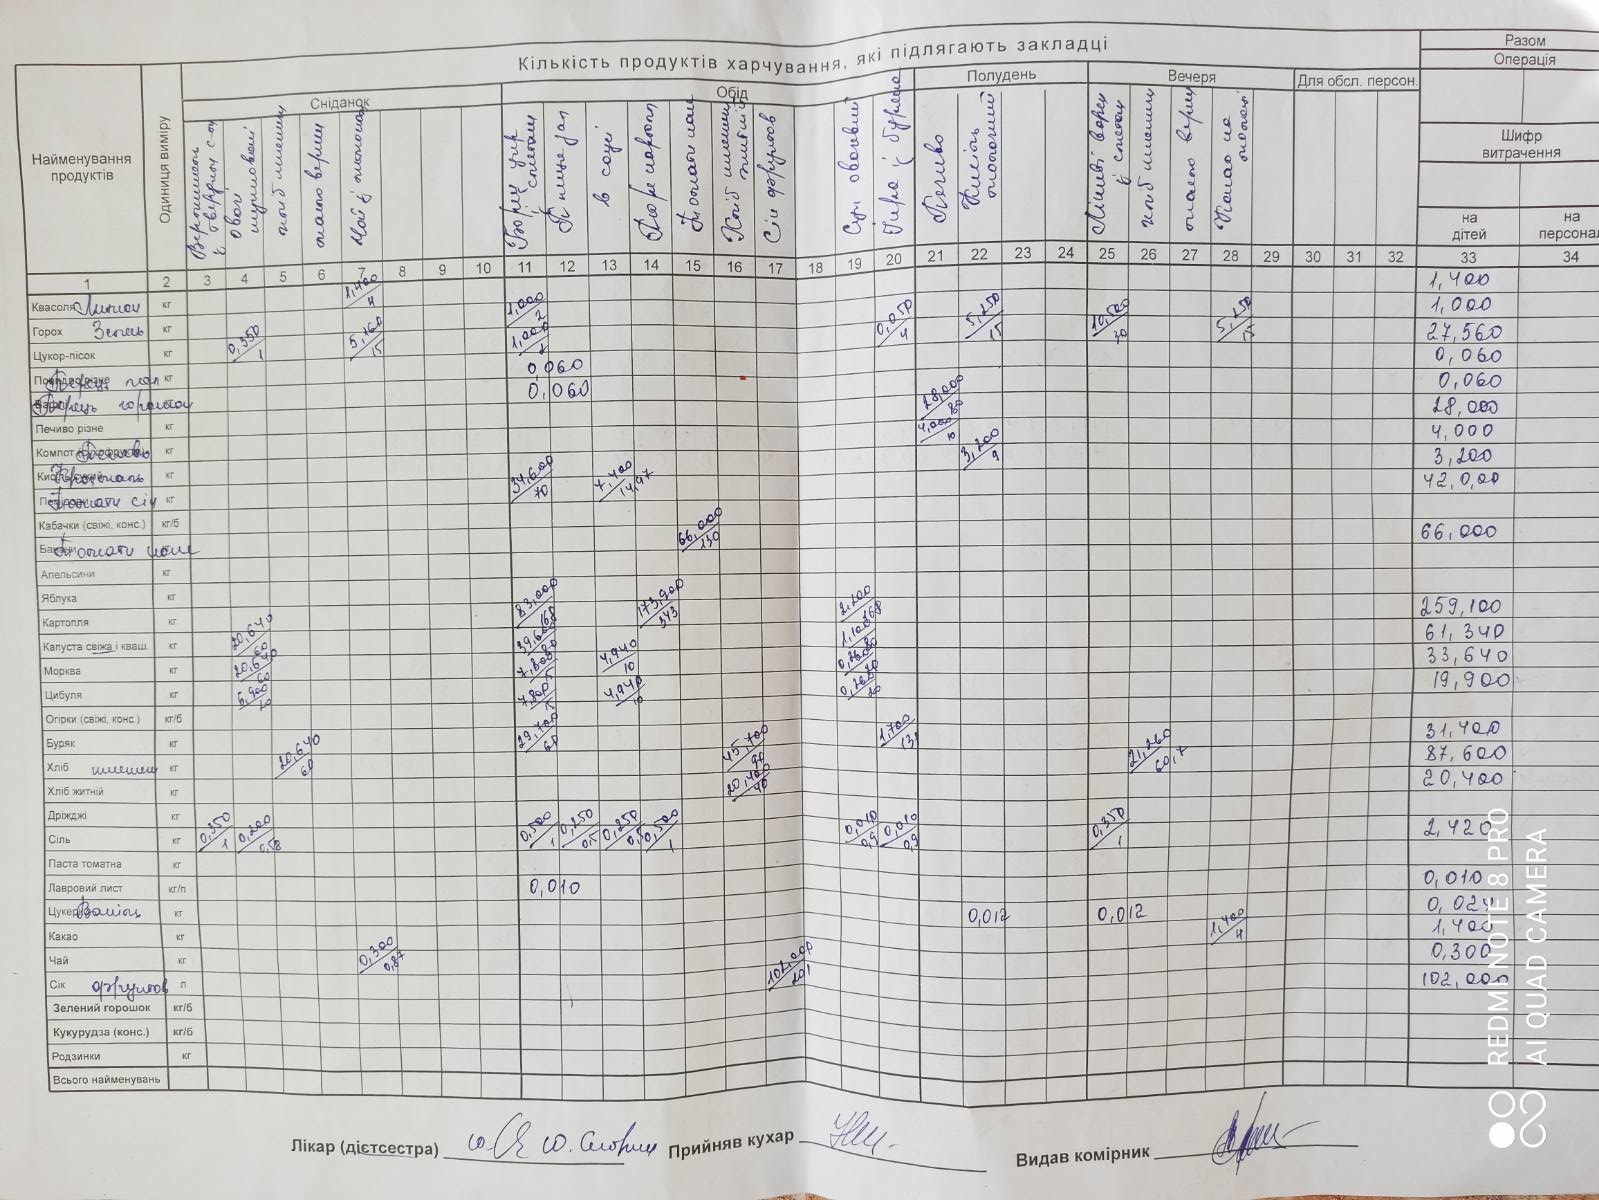 Кількість продуктів харчування, які підлягають закладці
Разом
Операція
Найменування продуктів
Одиниця виміру
Сніданок
Обід
Полудень
Вечеря
Для обсл. персон.
Шифр витрачення
на дітей
на персонал
Вермішель з твердих с-ів
овочі
хліб пшенич
масло верш
Чай з лимоном
Борщ укр зі сметан
в соусі
Пюре картоп
Томати
Хліб пшенич житній
Сік фруктов
Суп овочевий
Печиво
Кисіль молочний
Ліниві варен зі сметан
хліб пшенич
масло верш
Какао на молоці
1 2 3 4 5 6 7 8 9 10 11 12 13 14 15 16 17 18 19 20 21 22 23 24 25 26 27 28 29 30 31 32 33 34
Квасоля Лимон кг 1,400/4 1,400
Горох Зелень кг 1,000/2 1,000
Цукор-пісок кг 0,350/1 5,160/15 1,000/2 0,050/4 5,250/15 10,500/30 5,250/15 27,560
Перець мол кг 0,060 0,060
Перець горошком 0,060 0,060
Печиво різне кг 28,000/80 28,000
Компот кг 4,000/10 4,000
Крохмаль кг 3,200/9 3,200
Томати сік кг 34,600/70 7,400/14,97 42,000
Кабачки (свіжі, конс.) кг/б
Томати 66,000/130 66,000
Апельсини кг
Яблука кг
Картопля кг 83,000/168 173,900/343 2,200 259,100
Капуста свіжа і кваш. кг 20,640/60 39,600/80 1,100 61,340
Морква кг 20,640/60 7,800 4,940/10 0,260 33,640
Цибуля кг 6,900/20 7,800/15 4,940/10 0,260 19,900
Огірки (свіжі, конс.) кг/б
Буряк кг 29,700/60 1,700 31,400
Хліб пшенич кг 20,640/60 45,700/90 21,260/60,7 87,600
Хліб житній кг 20,400/40 20,400
Дріжджі кг
Сіль кг 0,350/1 0,200/0,58 0,500/1 0,250/0,5 0,250/0,5 0,500/1 0,010/0,9 0,010/0,9 0,350/1 2,420
Паста томатна кг
Лавровий лист кг/п 0,010 0,010
Ваніль кг 0,012 0,012 0,024
Какао кг 1,400/4 1,400
Чай кг 0,300/0,87 0,300
Сік фруктов л 102,000/201 102,000
Зелений горошок кг/б
Кукурудза (конс.) кг/б
Родзинки кг
Всього найменувань
Лікар (дієтсестра)
Прийняв кухар
Видав комірник
REDMI NOTE 8 PRO
AI QUAD CAMERA